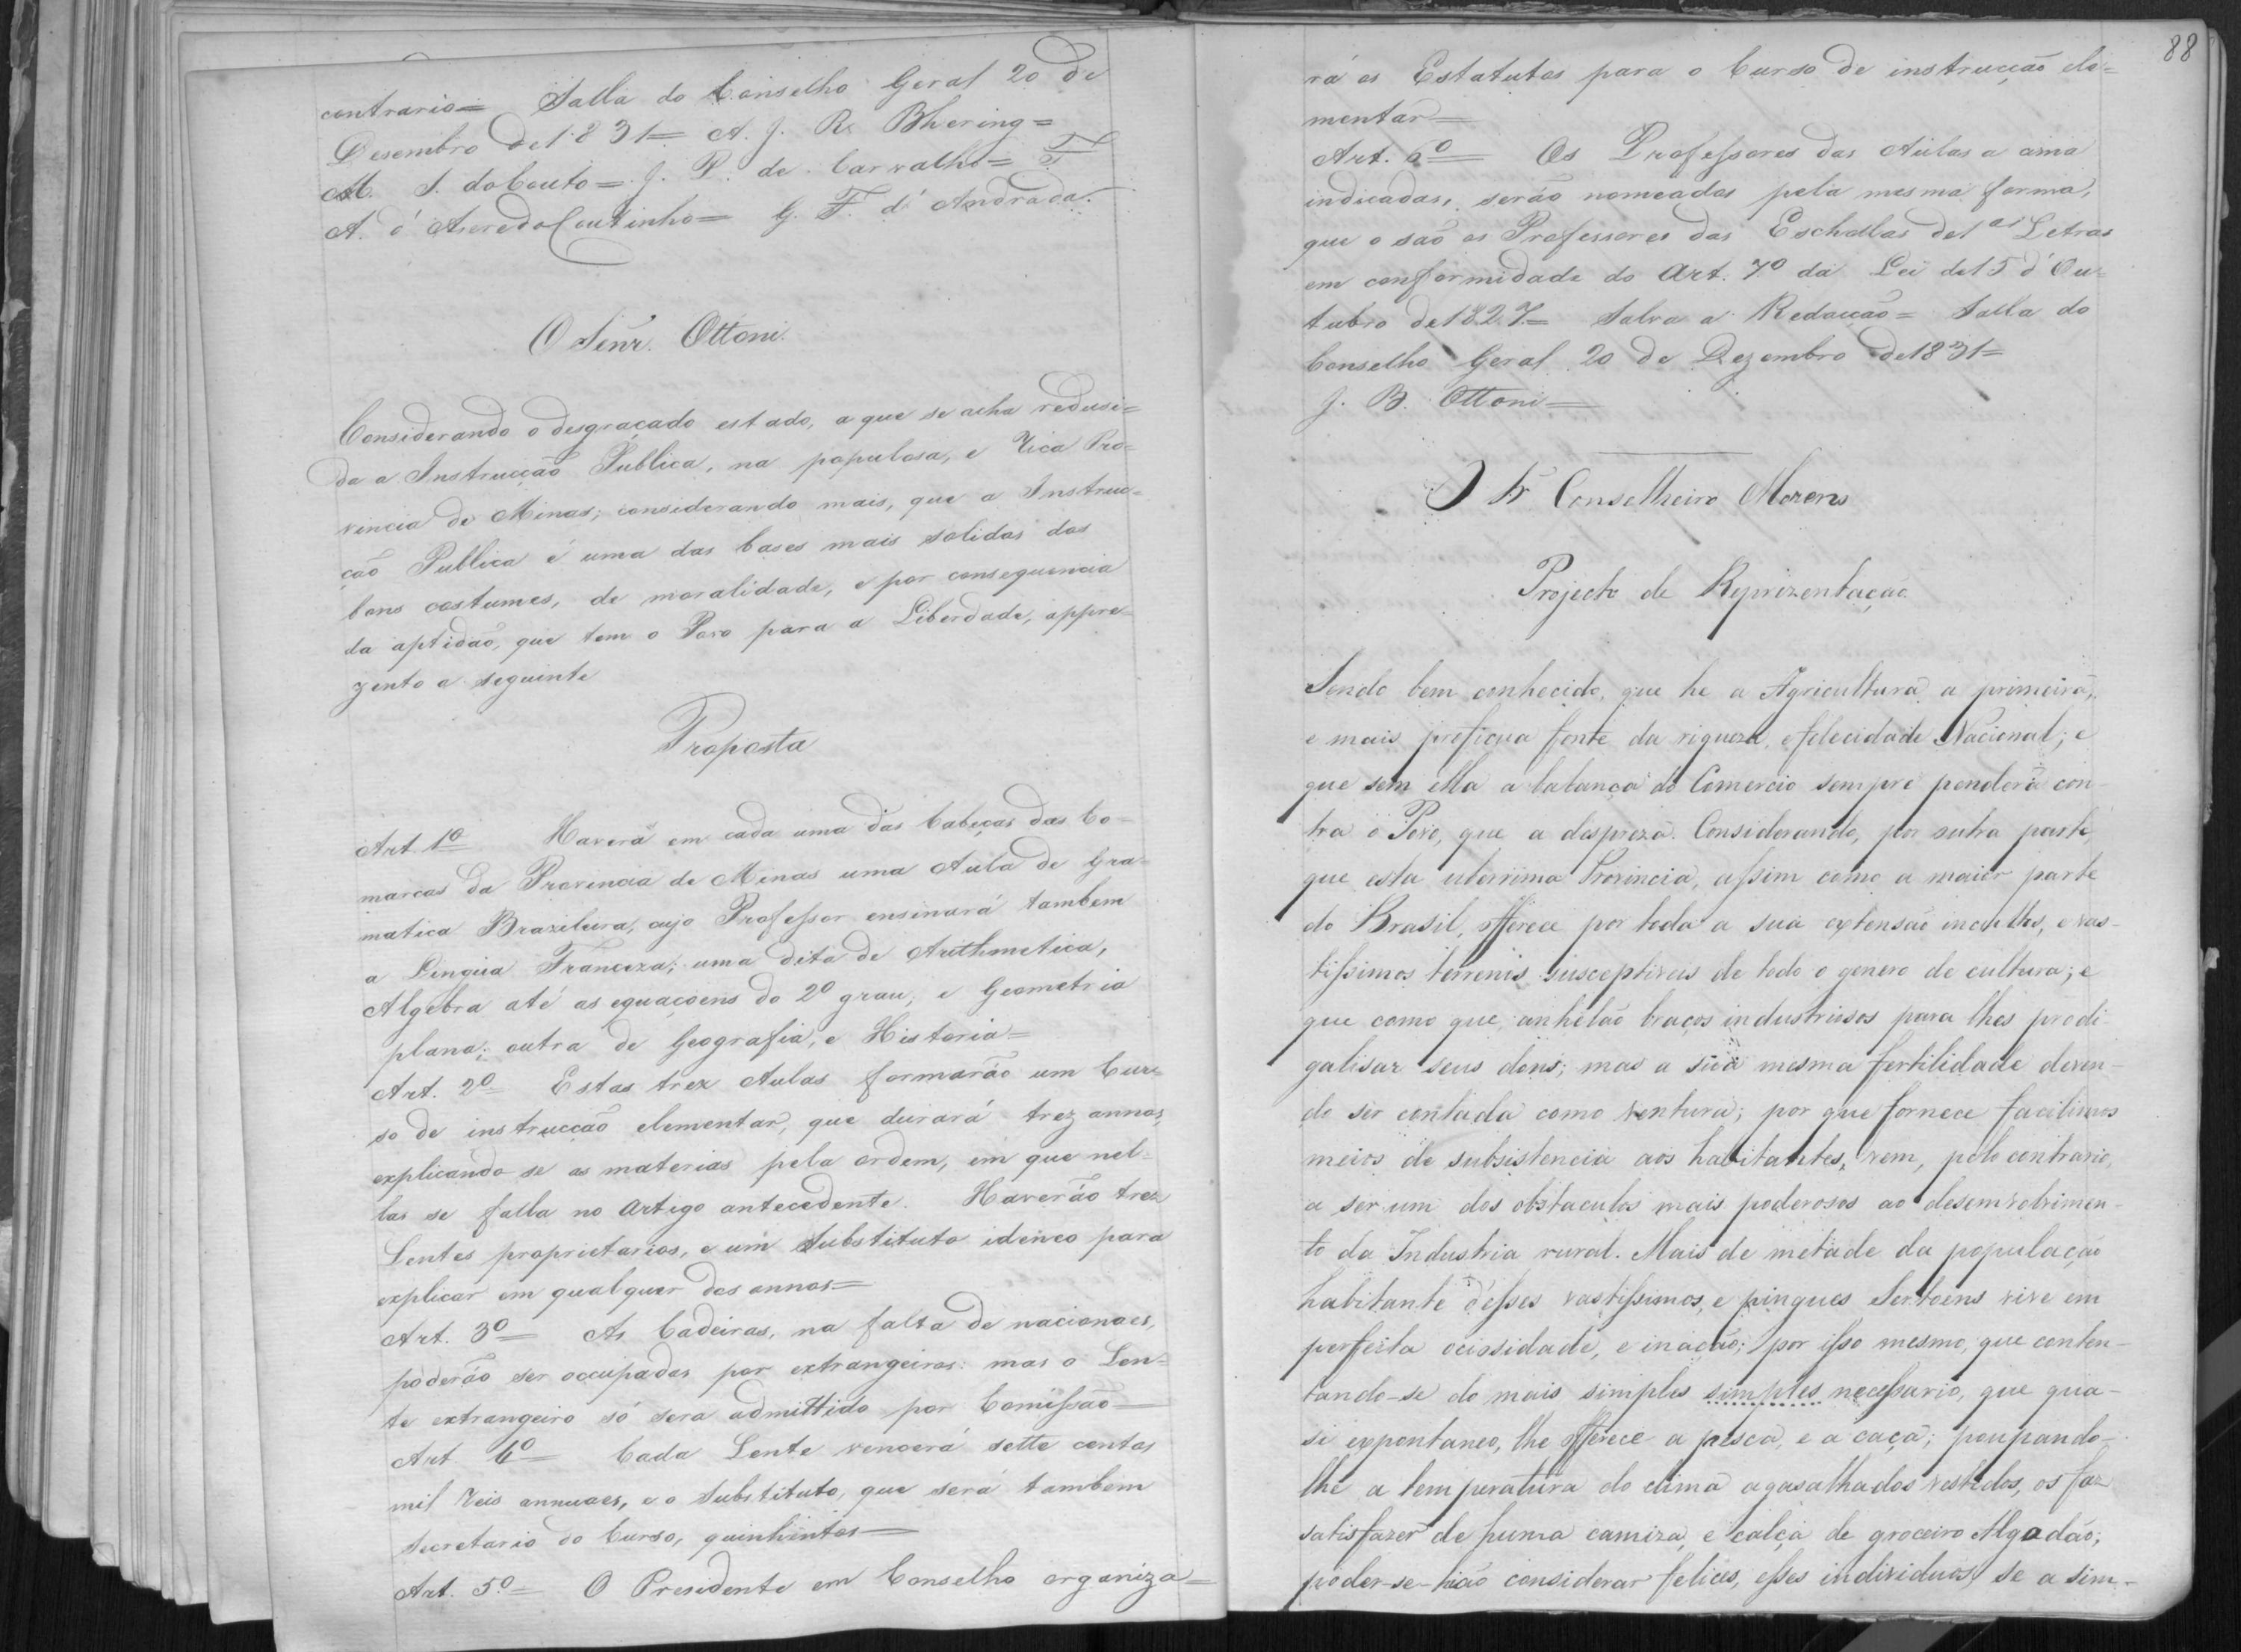 contrario= Salla do Conselho Geral 20 de
Desembro de 1831= A. J. R. Bhering=
M. S. do Couto= J. P. de Carvalho= F.
A. d' Aseredo Coutinho= G. F. d' Andrada.
O Senr. Ottoni.
Considerando o desgraçado estado, a que se acha redusi=
da a Instrucção Publica, na populosa, e rica Pro=
vincia de Minas; considerando mais, que a Instruc=
ção Publica é uma das bases mais solidas dos
bons costumes, de moralidade, e por consequencia
da aptidão, que tem o Povo para a Liberdade, appre=
zento a seguinte
Proposta
Art. 1º Haverá em cada uma das Cabeças das Co=
marcas da Provincia de Minas uma Aula de Gra=
matica Brazileira, cujo Professor ensinará tambem
a Lingua Franceza; uma dita de Arithmetica,
Algebra até as equaçoens do 2º grau, e Geometria
plana; outra de Geografia, e Historia=
Art. 2º Estas trez Aulas formarão um Cur=
so de instrucção elementar, que durará trez annos,
explicando-se as materias pela ordem, em que nel=
las se falla no Artigo antecedente. Haverão trez
Lentes proprietarios, e um Substituto idoneo para
explicar em qualquer dos annos=
Art. 3º= As Cadeiras, na falta de nacionaes,
poderão ser occupadas por extrangeiros: mas o Len=
te extrangeiro só sera admittido por Comissão=
Art 4º= Cada Lente vencerá sette centos
mil reis annuaes, e o Substituto, que será tambem
Secretario do Curso, quinhintos=
Art. 5º= O Presidente em Conselho organiza=
88
rá os Estatutos para o Curso de instrucção ele=
mentar=
Art. 6º= Os Professores das Aulas a cima
indicadas, serão nomeados pela mesma forma,
que o são os Professores das Eschollas de 1as Letras
em conformidade do Art. 7º da Lei de 15 d'Ou=
tubro de 1827.= Salva a Redacção= Salla do
Conselho Geral 20 de Dezembro de 1831=
J. B. Ottoni=
O Sr Conselheiro Morens
Projecto de Reprizentação
Sendo bem conhecido, que he a Agricultura a primeira,
e mais proficua fonte da riqueza, e felecidade Nacional; e
que sem ella a balança do Comercio sempre penderá con-
tra o Povo, que a despreza. Considerando, por outra parte,
que esta uberrima Provincia, assim como a maior parte
do Brasil, offerece por toda a sua extensão incultos, e vas-
tissimos terrenos susceptiveis de todo o genero de cultura; e
que como que anhelão braços industriosos para lhes prodi-
galisar seus dons; mas a sua mesma fertilidade deven-
do ser contada como ventura; por que fornece facilimos
meios de subsistencia aos habitantes, vem, pelo contrario,
a ser um dos obstaculos mais poderosos ao desemvolvimen-
to da Industria rural. Mais de metade da população
habitante d'esses vastissimos, e pingues Sertoens vive em
perfeita ociosidade, e inacção; por isso mesmo, que conten-
tando-se do mais simples simples necessario, que qua-
si expontaneo, lhe offerece a pesca, e a caça; poupando-
lhe a temperatura do clima agasalhados vestidos, os faz
satisfazer de huma camiza, e calça de groceiro Algodão;
poder-se-hião considerar felices, esses individuos, se a sim-